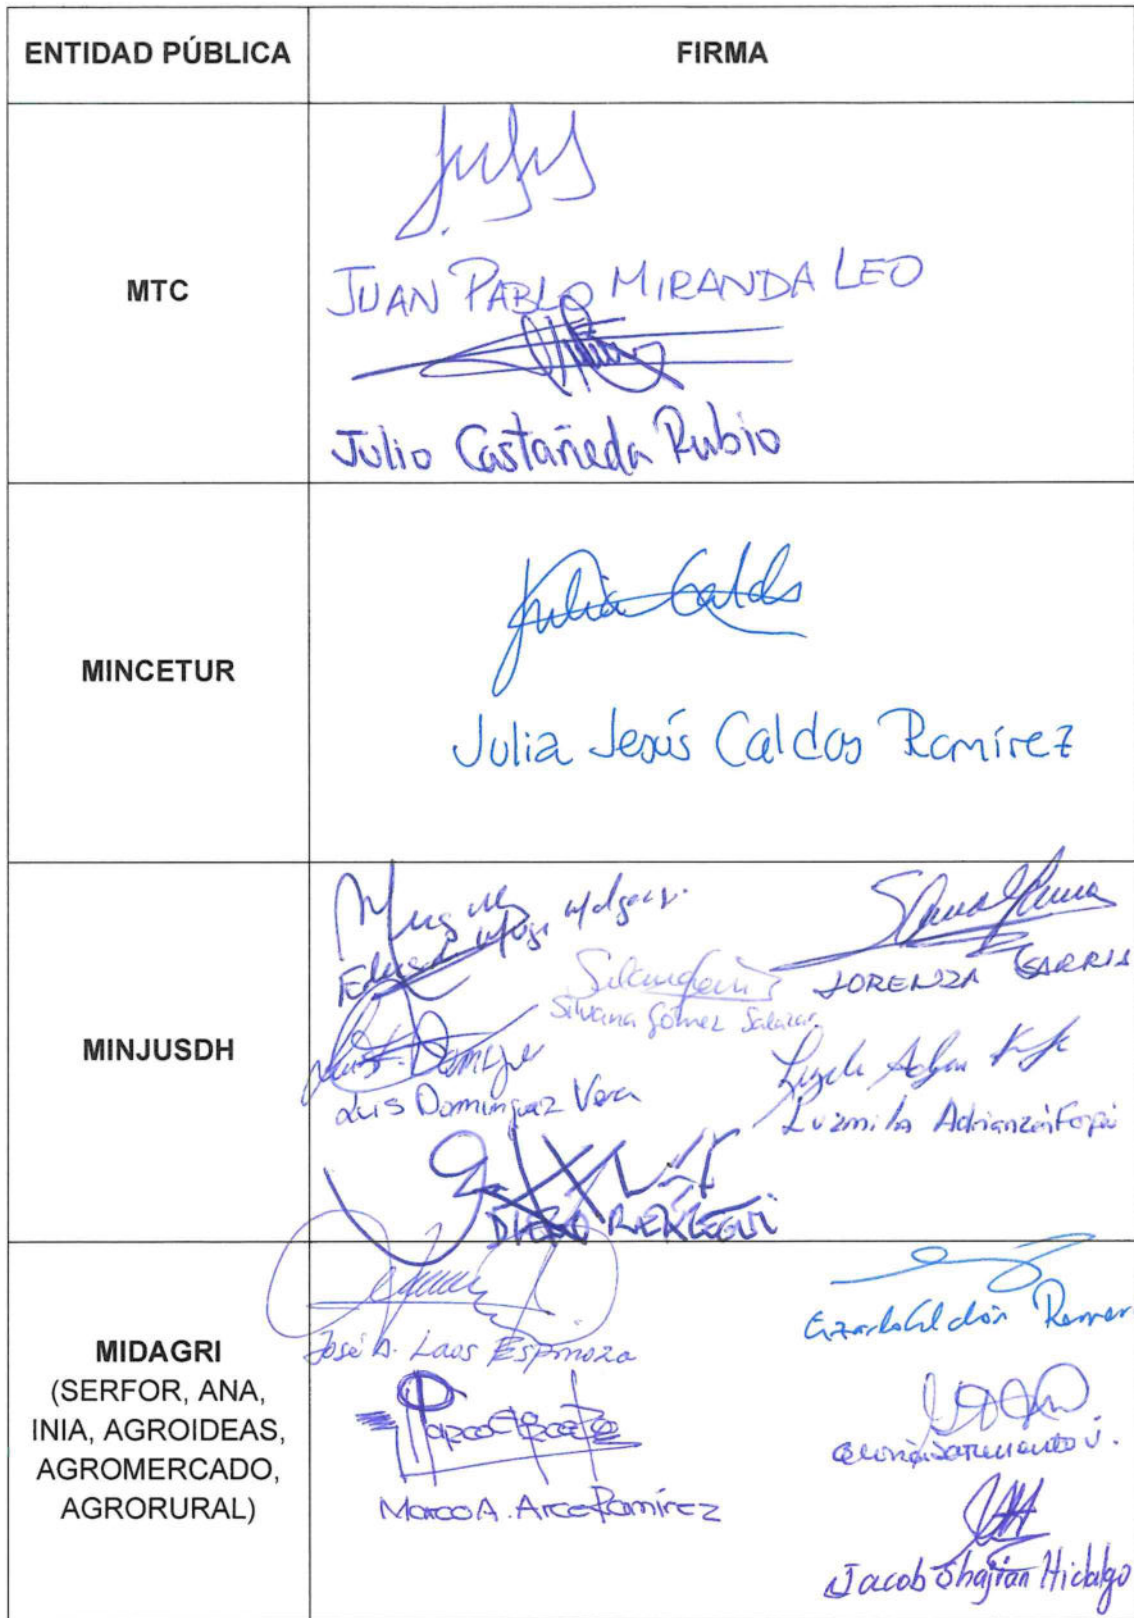 ENTIDAD PÚBLICA
FIRMA
MTC
JUAN PABLO MIRANDA LEO
Julio Castañeda Rubio
MINCETUR
Julia Caldas
Julia Jesús Caldas Ramírez
MINJUSDH
LORENZA SARRIA
Silvana Gómez Salazar
Luis Dominguez Vera
Luzmila Adrianzén
DIEGO REATEGUI
MIDAGRI
(SERFOR, ANA,
INIA, AGROIDEAS,
AGROMERCADO,
AGRORURAL)
José A. Laos Espinoza
Marco A. Arce Ramírez
Sarmiento V.
Jacob Shajian Hidalgo